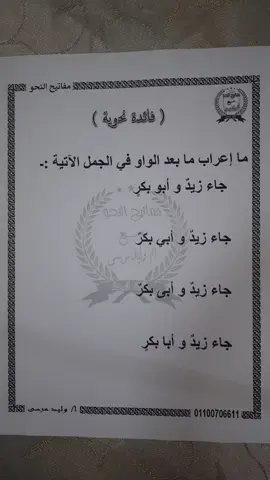 مفاتيح النحو
( فائدة نحوية )
ما إعراب ما بعد الواو في الجمل الآتية :-
جاء زيدٌ و أبو بكرٍ
جاء زيدٌ و أبي بكرٌ
جاء زيدٌ و أبى بكرٌ
جاء زيدٌ و أبا بكرٍ
مفاتيح النحو
أ/ وليد مرسي
01100706611